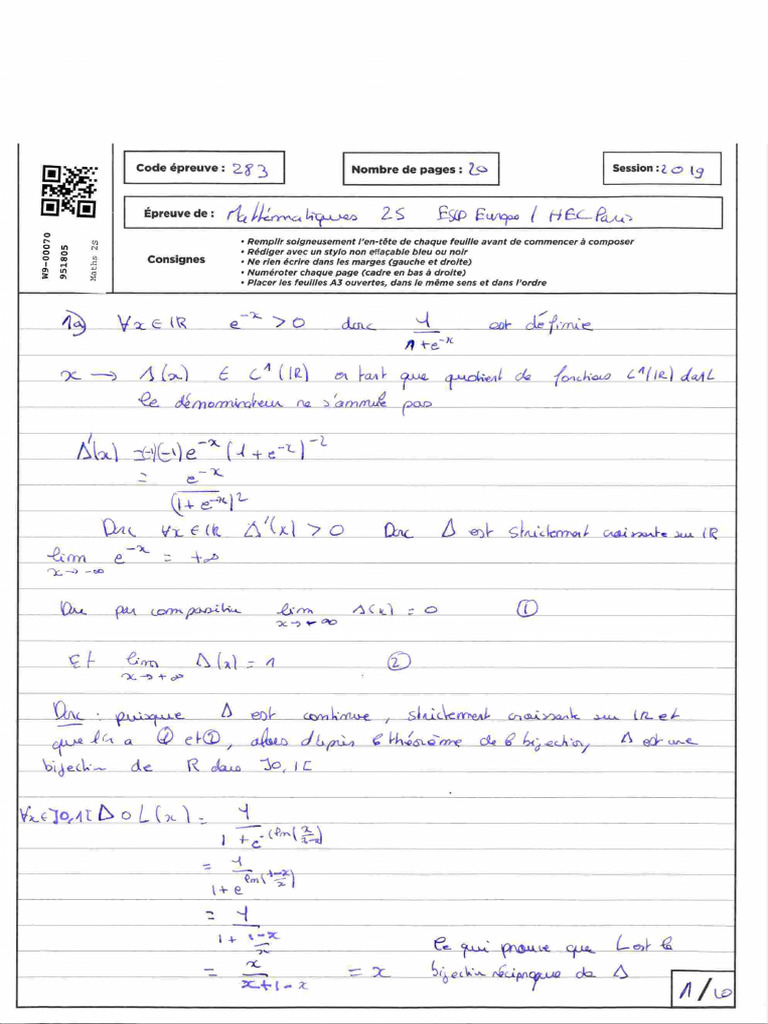 Code épreuve : 283
Nombre de pages : 20
Session : 2019
Épreuve de : Mathématiques 2S ESCP Europe / HEC Paris
Consignes
• Remplir soigneusement l'en-tête de chaque feuille avant de commencer à composer
• Rédiger avec un stylo non effaçable bleu ou noir
• Ne rien écrire dans les marges (gauche et droite)
• Numéroter chaque page (cadre en bas à droite)
• Placer les feuilles A3 ouvertes, dans le même sens et dans l'ordre
W9-00070
951805
Maths 2S
1a) ∀x∈IR e^{-x} > 0 donc 1/(1+e^{-x}) est définie
x → Δ(x) ∈ C^1(IR) en tant que quotient de fonctions C^1(IR) dont
le dénominateur ne s'annule pas
Δ'(x) = (-1)(-1)e^{-x}(1+e^{-x})^{-2}
= e^{-x}/(1+e^{-x})^2
Donc ∀x∈IR Δ'(x) > 0 Donc Δ est strictement croissante sur IR
lim_{x→-∞} e^{-x} = +∞
Donc par composition lim_{x→-∞} Δ(x) = 0 ①
Et lim_{x→+∞} Δ(x) = 1 ②
Donc : puisque Δ est continue, strictement croissante sur IR et
que l'on a ① et ②, alors d'après le théorème de la bijection, Δ est une
bijection de R dans ]0,1[
∀x∈]0,1[ Δ o L(x) = 1/(1+e^{-(ln(x/(1-x)))})
= 1/(1+e^{ln((1-x)/x)})
= 1/(1+(1-x)/x)
Ce qui prouve que L est la
= x/(x+1-x) = x bijection réciproque de Δ
1/20